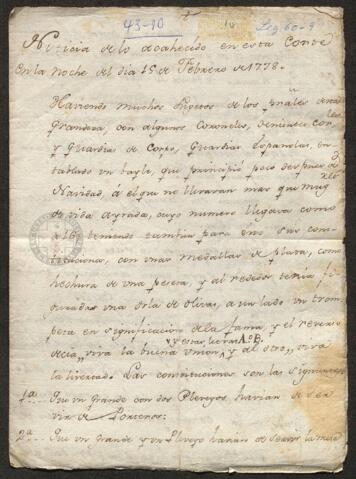 43-10
Leg. 60-9
Noticia de lo acahecido en esta Corte
En la noche del dia 15 de Febrero de 1778.
Haviendo muchos sugetos de los pral.es de la
Grandeza, con algunos Coroneles, Tenientes Cor.les
y Guardias de Corps, Guardias Españolas, en
tablado un bayle, que principió poco despues de
Navidad, á el que no llevaran mas que mug.s
de vida ayrada, cuyo numero llegava como
a 16 teniendo tambien para eso sus cons
tituciones, con unas medallas de plata, como
hechura de una peseta, y al rededor tenia fi
guradas una orla de olivas, a un lado un trom
peta en significacion de la fama, y el reverso
y estas letras A. B.
decia, viva la buena union, y al otro, viva
la livertad. Las constituciones son las siguientes
1ª Que un grande con dos Plebeyos havian de ser
vir de Porteros.
2ª Que un grande y un Plebeyo havian de servir la mesa